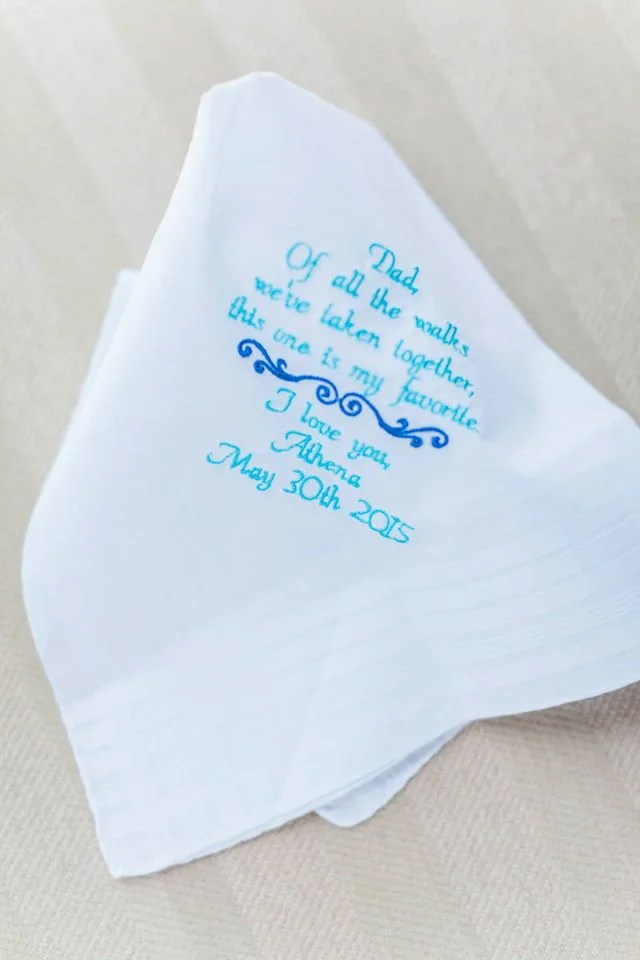 Dad,
Of all the walks
we've taken together,
this one is my favorite.
I love you,
Athena
May 30th 2015